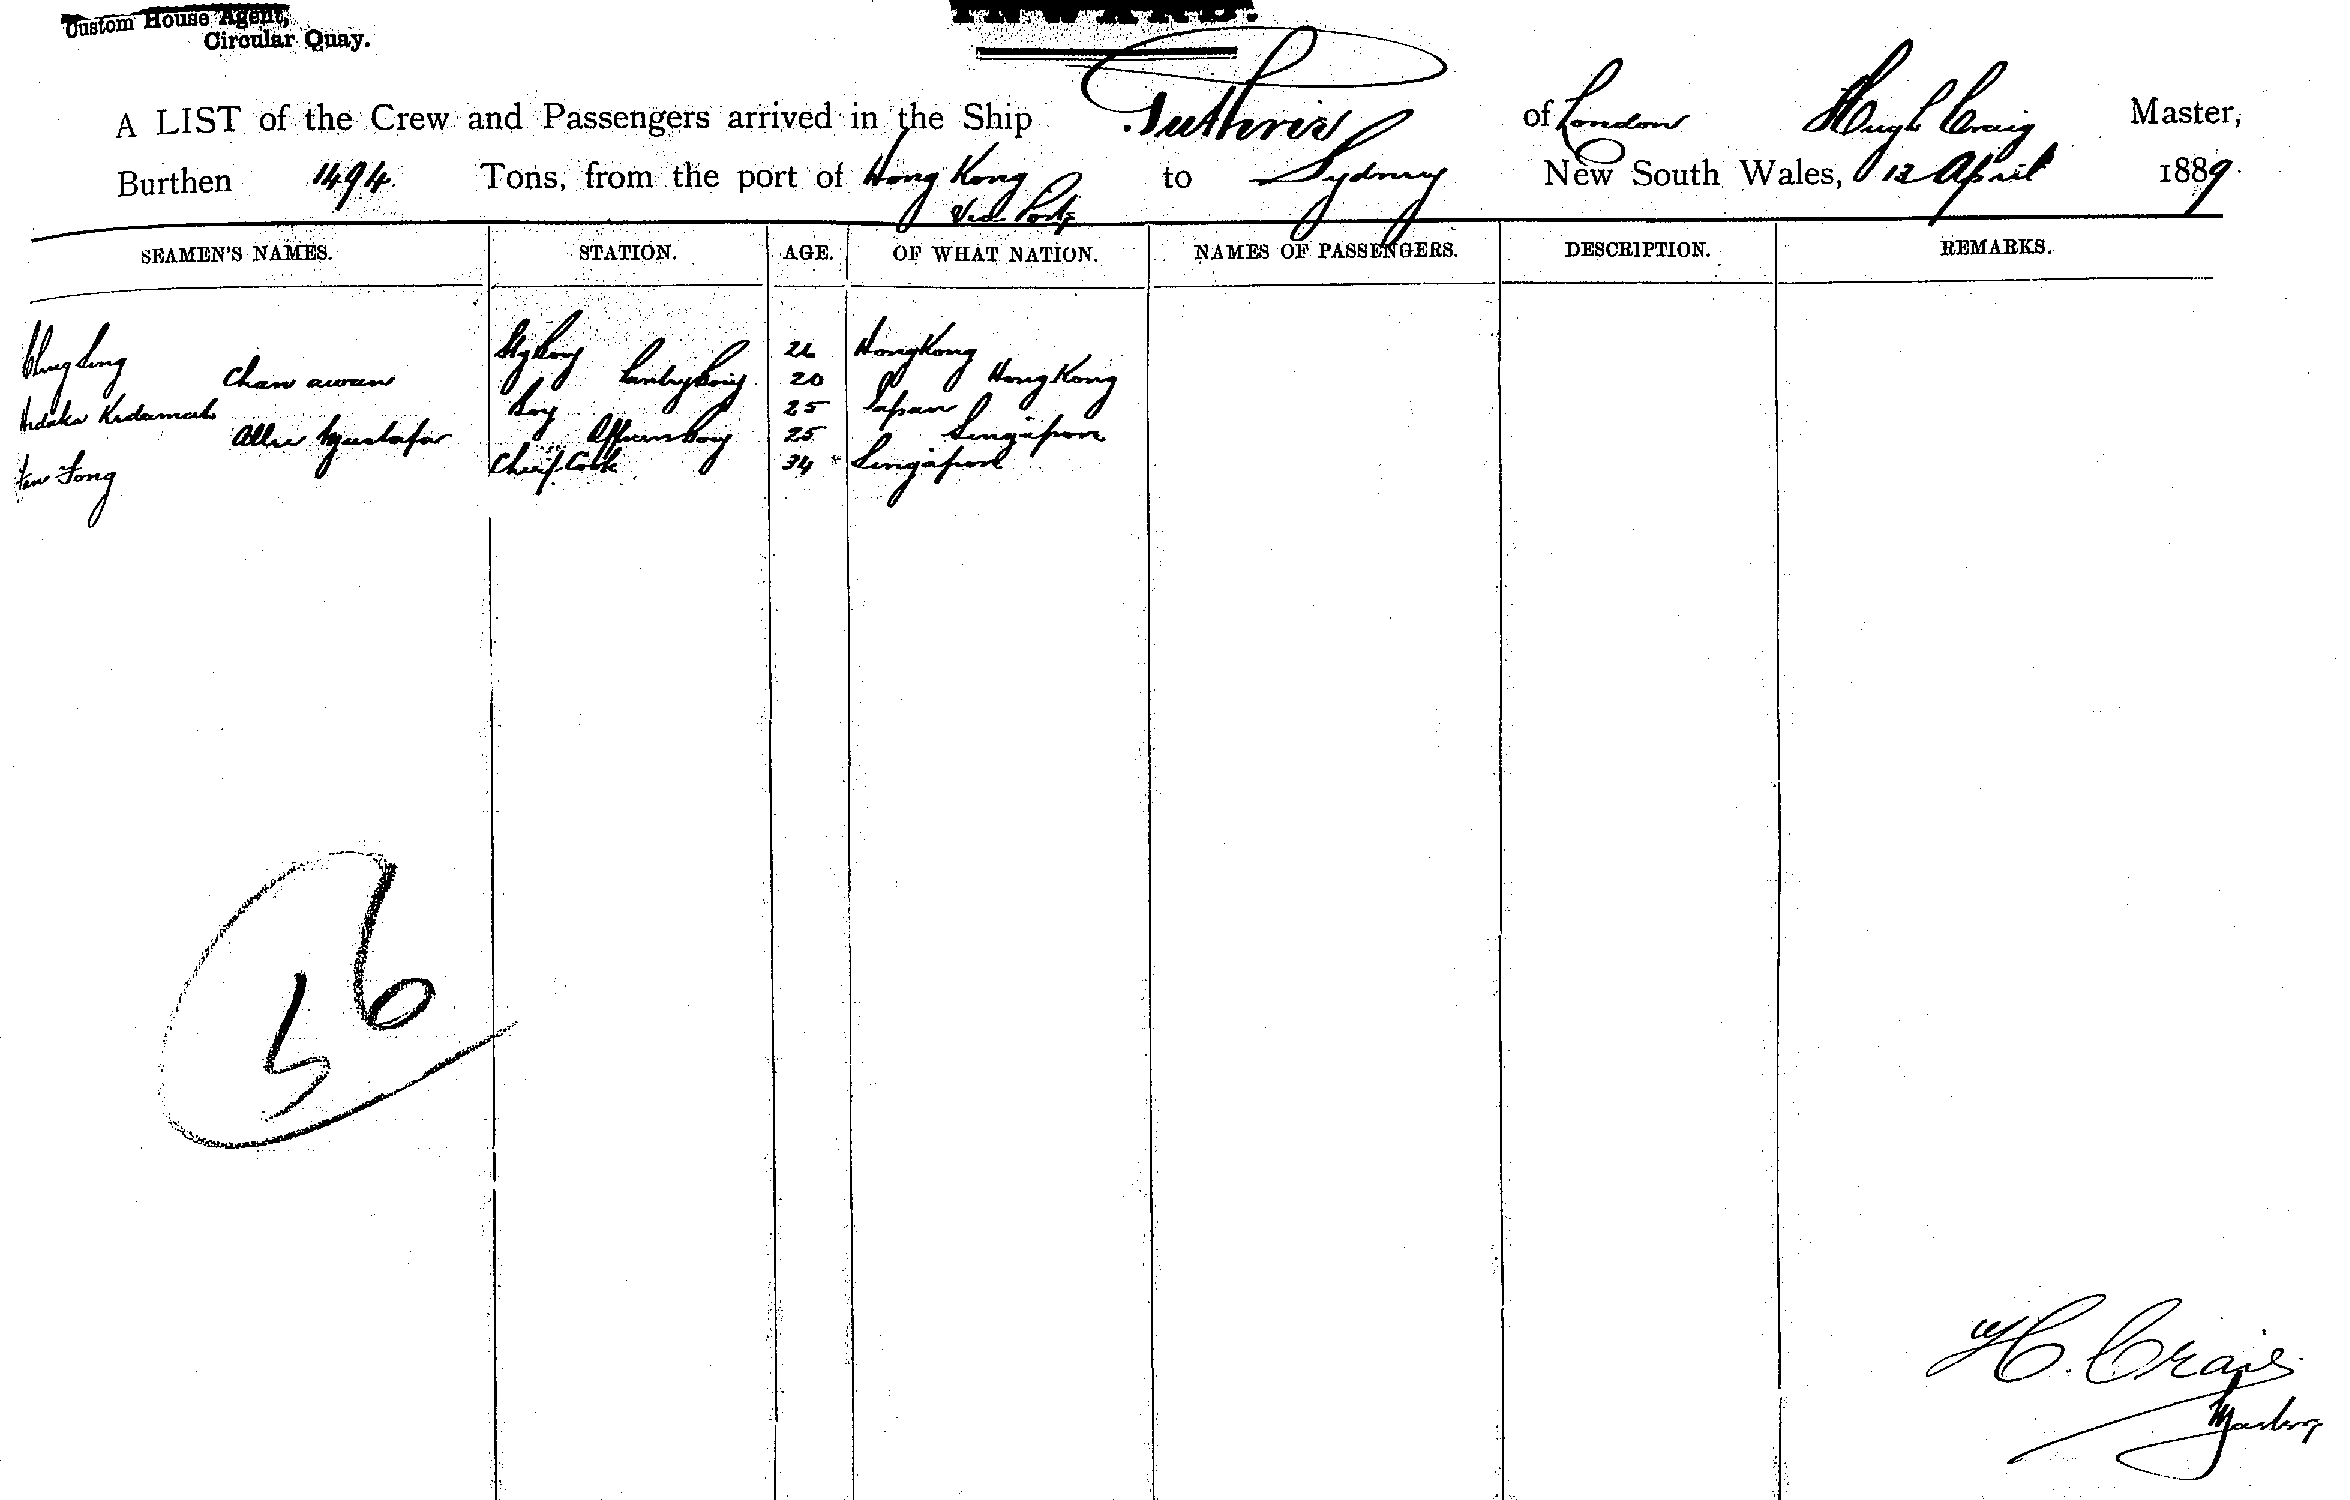 Custom House Agent,
Circular Quay.
INWARD.
A LIST of the Crew and Passengers arrived in the Ship Guthrie of London Hugh Craig Master,
Burthen 1494 Tons, from the port of Hong Kong to Sydney New South Wales, 12 April 1889
Via Ports
SEAMEN'S NAMES. STATION. AGE. OF WHAT NATION. NAMES OF PASSENGERS. DESCRIPTION. REMARKS.
Boy Hong Kong
Chan Pantry Boy 20 Hong Kong
Boy 25 Japan
Allie Boy 25 Singapore
Fong Chief Cook 34 Singapore
56
H. Craig
Master